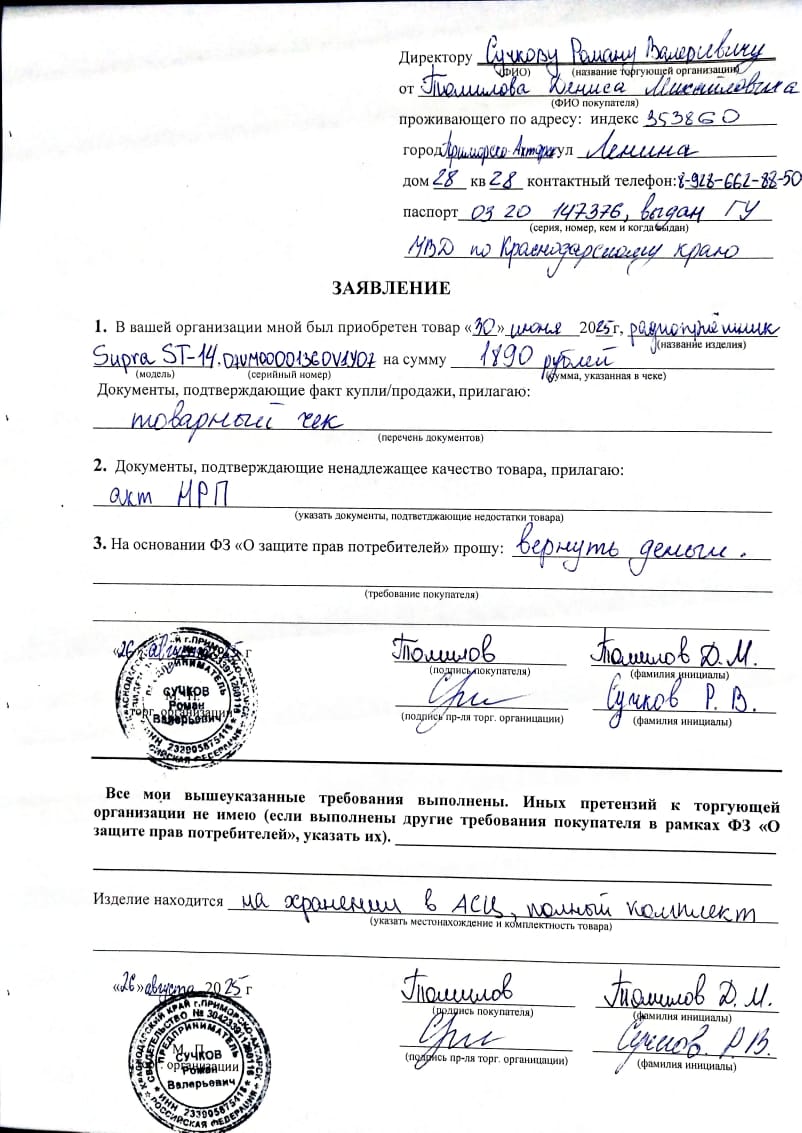 Директору Сучкову Роману Валериевичу
(ФИО) (название торгующей организации)
от Томилова Дениса Михайловича
(ФИО покупателя)
проживающего по адресу: индекс 353860
город Приморско-Ахтарск ул Ленина
дом 28 кв 28 контактный телефон: 8-928-662-88-50
паспорт 03 20 147376, выдан ГУ
(серия, номер, кем и когда выдан)
МВД по Краснодарскому краю
ЗАЯВЛЕНИЕ
1. В вашей организации мной был приобретен товар «30» июня 2025 г, радиоприёмник
(название изделия)
Supra ST-14, на сумму 1890 рублей
(модель) (серийный номер) (сумма, указанная в чеке)
Документы, подтверждающие факт купли/продажи, прилагаю:
товарный чек
(перечень документов)
2. Документы, подтверждающие ненадлежащее качество товара, прилагаю:
акт НРП
(указать документы, подтветджающие недостатки товара)
3. На основании ФЗ «О защите прав потребителей» прошу: вернуть деньги.
(требование покупателя)
«26» августа 25 г Томилов Томилов Д.М.
(подпись покупателя) (фамилия инициалы)
СУЧКОВ
Роман
Валерьевич
М. П.
торг. организации
Сучков Р. В.
(подпись пр-ля торг. органицации) (фамилия инициалы)
Все мои вышеуказанные требования выполнены. Иных претензий к торгующей
организации не имею (если выполнены другие требования покупателя в рамках ФЗ «О
защите прав потребителей», указать их).
Изделие находится на хранении в АСЦ, полный комплект
(указать местонахождение и комплектность товара)
«26» августа 2025 г Томилов Томилов Д.М.
(подпись покупателя) (фамилия инициалы)
КРАСНОДАРСКИЙ КРАЙ г.ПРИМОРСКО-АХТАРСК
ПРЕДПРИНИМАТЕЛЬ
СУЧКОВ
Роман
Валерьевич
ИНН 233905875418
РОССИЙСКАЯ ФЕДЕРАЦИЯ
М. П.
торг. организации
Сучков. Р.В.
(подпись пр-ля торг. органицации) (фамилия инициалы)